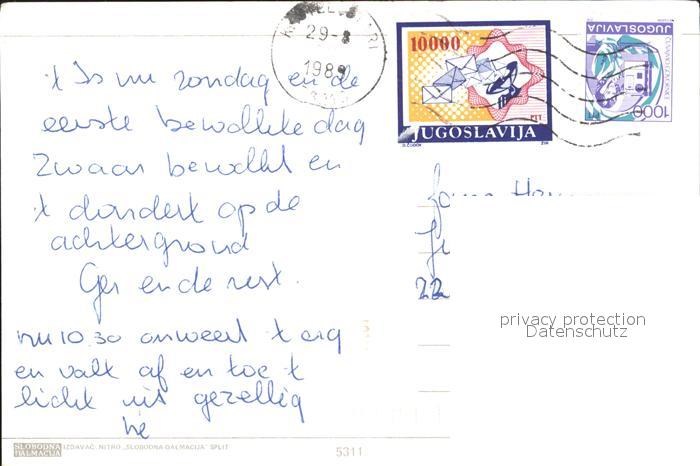 't Is nu zondag en de
eerste bewolkte dag
Zwaar bewolkt en
't dondert op de
achtergrond
Ger en de rest.
nu 10.30 onweert 't erg
en valt af en toe 't
licht uit gezellig
hè
29-8
1989
10000
PTT
JUGOSLAVIJA
JUGOSLAVIJA
1000
22
privacy protection
Datenschutz
SLOBODNA
DALMACIJA
IZDAVAČ: NITRO „SLOBODNA DALMACIJA" SPLIT
5311